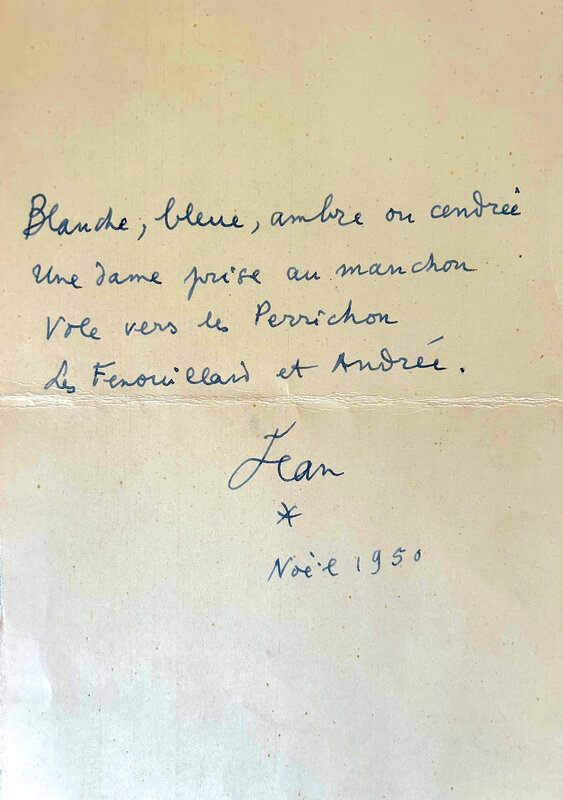 Blanche, bleue, ambre ou cendrée
Une dame prise au manchon
Vole vers les Perrichon
Les Fenouillard et Andrée.
Jean
*
Noël 1950